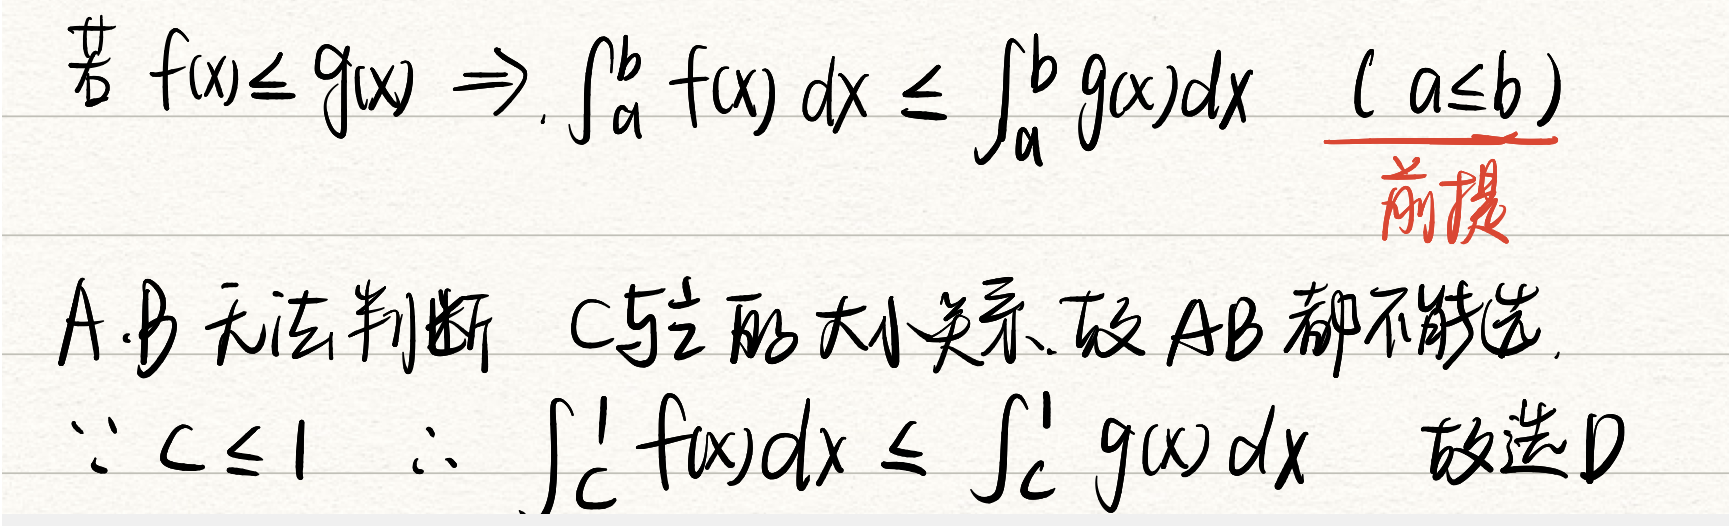 若 f(x) ≤ g(x) ⇒. ∫_a^b f(x) dx ≤ ∫_a^b g(x) dx (a≤b)
前提
A.B 无法判断 C与½的大小关系.故AB都不能选.
∵ C ≤ 1 ∴ ∫_C^1 f(x) dx ≤ ∫_C^1 g(x) dx 故选D